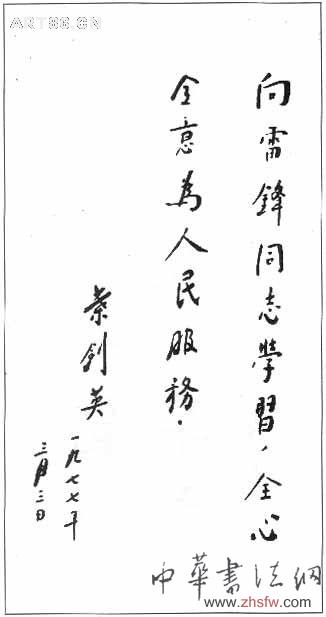 ART86.CN
向雷鋒同志學習，全心
全意為人民服務．
葉劍英
一九七七年
三月三日
中華書法網
www.zhsfw.com